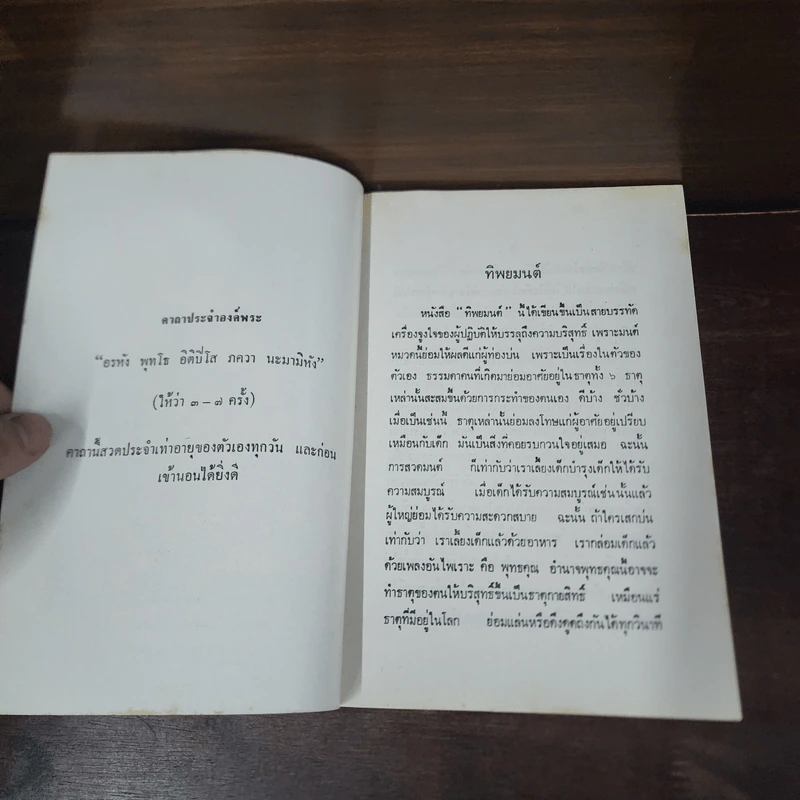 คาถาประจำองค์พระ
"อรหัง พุทโธ อิติปิโส ภควา นะมามิหัง"
(ให้ว่า ๓ – ๗ ครั้ง)
คาถานี้สวดประจำเท่าอายุของตัวเองทุกวัน และก่อน
เข้านอนได้ยิ่งดี
ทิพยมนต์
หนังสือ "ทิพยมนต์" นี้ได้เขียนขึ้นเป็นสายบรรทัด
เครื่องจูงใจของผู้ปฏิบัติให้บรรลุถึงความบริสุทธิ์ เพราะมนต์
หมวดนี้ย่อมให้ผลดีแก่ผู้ท่องบ่น เพราะเป็นเรื่องในตัวของ
ตัวเอง ธรรมดาคนที่เกิดมาย่อมอาศัยอยู่ในธาตุทั้ง ๖ ธาตุ
เหล่านั้นสะสมขึ้นด้วยการกระทำของตนเอง ดีบ้าง ชั่วบ้าง
เมื่อเป็นเช่นนี้ ธาตุเหล่านั้นย่อมลงโทษแก่ผู้อาศัยอยู่เปรียบ
เหมือนกับเด็ก มันเป็นสิ่งที่คอยรบกวนใจอยู่เสมอ ฉะนั้น
การสวดมนต์ ก็เท่ากับว่าเราเลี้ยงเด็กบำรุงเด็กให้ได้รับ
ความสมบูรณ์ เมื่อเด็กได้รับความสมบูรณ์เช่นนั้นแล้ว
ผู้ใหญ่ย่อมได้รับความสะดวกสบาย ฉะนั้น ถ้าใครเสกบ่น
เท่ากับว่า เราเลี้ยงเด็กแล้วด้วยอาหาร เรากล่อมเด็กแล้ว
ด้วยเพลงอันไพเราะ คือ พุทธคุณ อำนาจพุทธคุณนี้อาจจะ
ทำธาตุของตนให้บริสุทธิ์ขึ้นเป็นธาตุกายสิทธิ์ เหมือนแร่
ธาตุที่มีอยู่ในโลก ย่อมแล่นหรือดึงดูดถึงกันได้ทุกวินาที